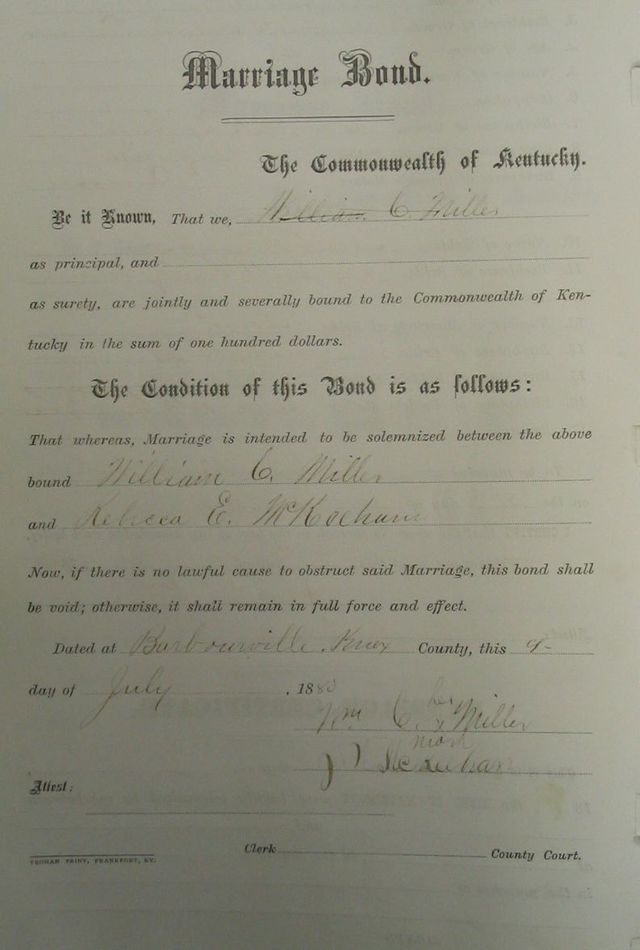 Marriage Bond.
The Commonwealth of Kentucky.
Be it Known, That we, William C. Miller
as principal, and
as surety, are jointly and severally bound to the Commonwealth of Ken-
tucky in the sum of one hundred dollars.
The Condition of this Bond is as follows:
That whereas, Marriage is intended to be solemnized between the above
bound William C. Miller
and Rebecca E.
Now, if there is no lawful cause to obstruct said Marriage, this bond shall
be void; otherwise, it shall remain in full force and effect.
Dated at Barbourville Knox County, this 9
day of July, 188
his
Wm C. x Miller
mark
Attest:
Clerk County Court.
YEOMAN PRINT, FRANKFORT, KY.